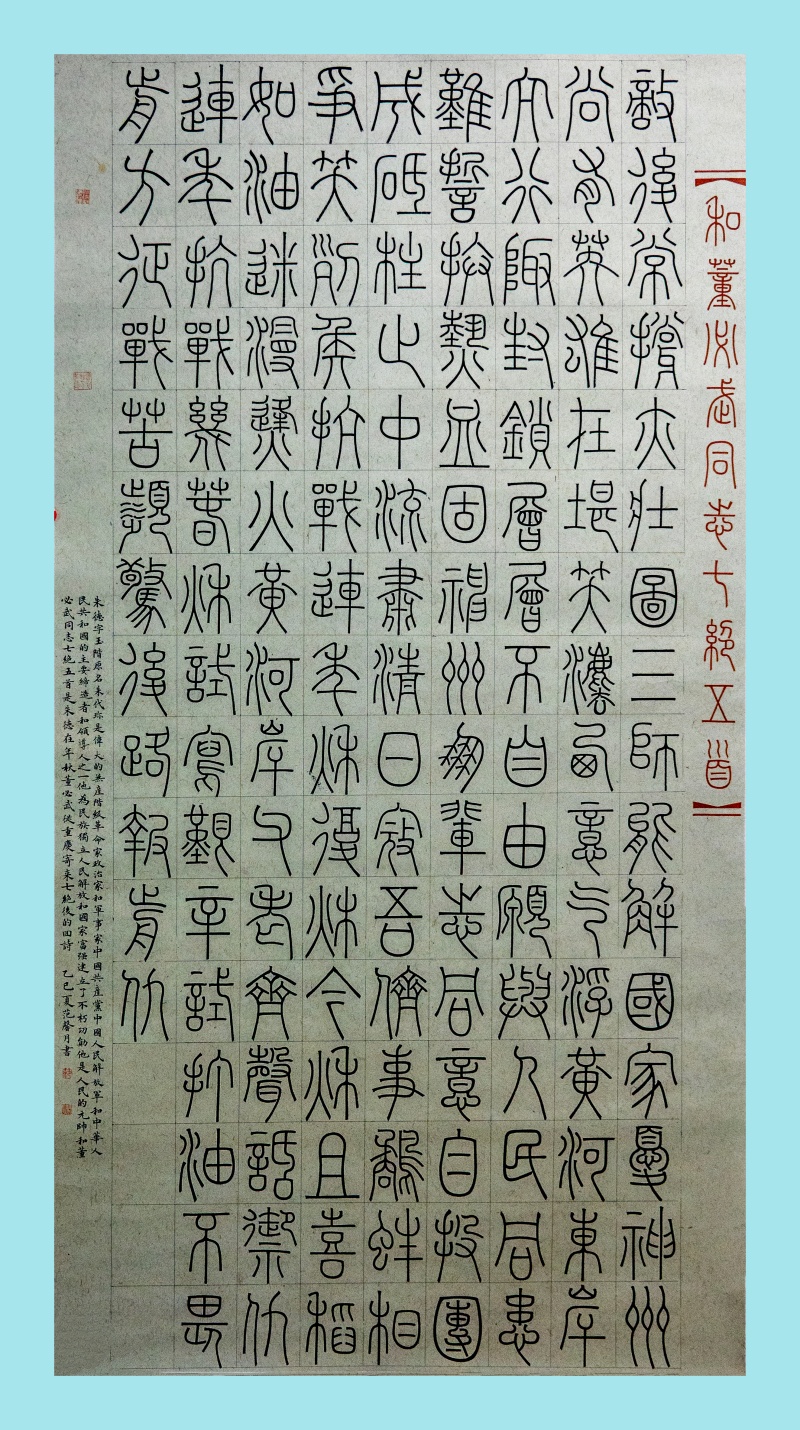 【和董必武同志七絕五首】
敵後常撐亦壯圖三師能解國家憂神州
尚有英雄在堪笑灋西意气浮黃河東岸
太行陬封鎖層層不自由願與人民同患
難誓拚熱血固神州朋輩志同意自投團
成砥柱止中流肅清日寇吾儕事鷸蚌相
爭笑列侯抗戰連年秋復秋今秋且喜稻
如油迷漫烽火黃河岸父老齊聲話禦仇
連年抗戰幾春秋詩寫艱辛詩打油不畏
前方征戰苦頻驚後路報前仇
朱德字玉階原名朱代珍是偉大的無產階級革命家政治家和軍事家中國共產黨中國人民解放軍和中華人
民共和國的主要締造者和領導人之一他為民族獨立人民解放和國家富强建立了不朽功勛他是人民的元帥和董
必武同志七絕五首是朱德在年秋董必武從重慶寄來七絕後的回詩 乙巳夏范馨月書